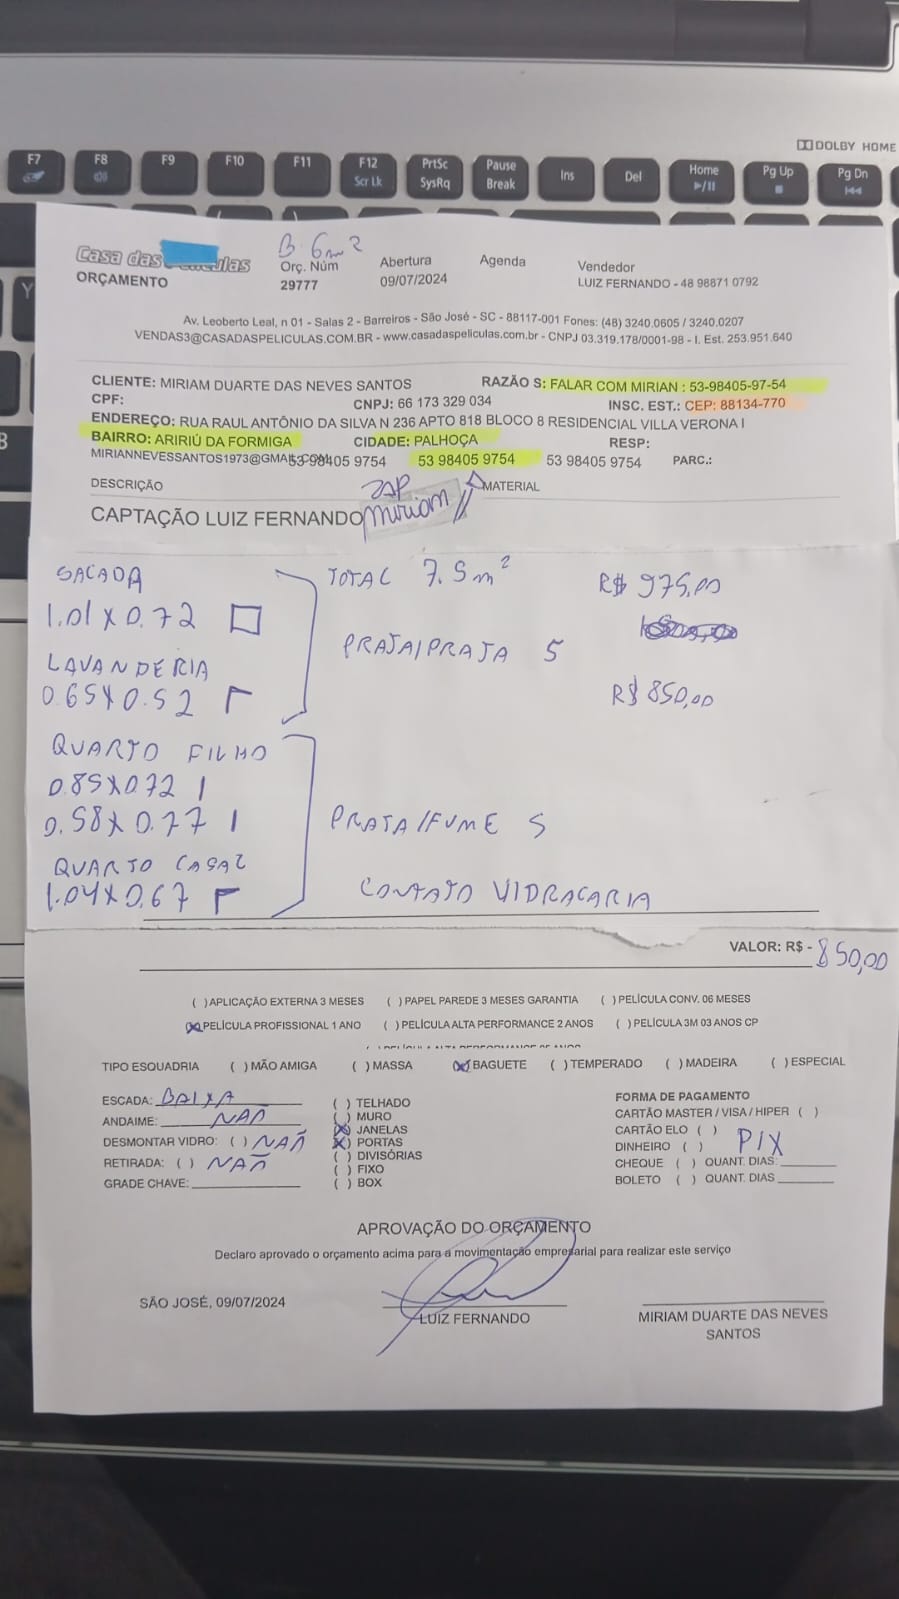 DOLBY HOME
F7 F8 F9 F10 F11 F12 PrtSc Pause Ins Del Home Pg Up Pg Dn
Scr Lk SysRq Break
Y
B
Casa das
B. 6m²
ORÇAMENTO
Orç. Núm
29777
Abertura
09/07/2024
Agenda
Vendedor
LUIZ FERNANDO - 48 98871 0792
Av. Leoberto Leal, n 01 - Salas 2 - Barreiros - São José - SC - 88117-001 Fones: (48) 3240.0605 / 3240.0207
VENDAS3@CASADASPELICULAS.COM.BR - www.casadaspeliculas.com.br - CNPJ 03.319.178/0001-98 - I. Est. 253.951.640
CLIENTE: MIRIAM DUARTE DAS NEVES SANTOS RAZÃO S: FALAR COM MIRIAN : 53-98405-97-54
CPF: CNPJ: 66 173 329 034 INSC. EST.: CEP: 88134-770
ENDEREÇO: RUA RAUL ANTÔNIO DA SILVA N 236 APTO 818 BLOCO 8 RESIDENCIAL VILLA VERONA I
BAIRRO: ARIRIÚ DA FORMIGA CIDADE: PALHOÇA RESP:
MIRIANNEVESSANTOS1973@GMAIL.COM 53 98405 9754 53 98405 9754 53 98405 9754 PARC.:
DESCRIÇÃO ZAP MATERIAL
CAPTAÇÃO LUIZ FERNANDO Miriam
SACADA TOTAL 7.5m² R$ 975,00
1.01 x 0.72
PRATA/PRATA 5
LAVANDERIA
0.65x0.52 R$ 850,00
QUARTO FILHO
0.85x0.72
0.58x0.77 PRATA/FUME 5
QUARTO CASAL
1.04x0.67 CONTATO VIDRAÇARIA
VALOR: R$ - 850,00
( ) APLICAÇÃO EXTERNA 3 MESES ( ) PAPEL PAREDE 3 MESES GARANTIA ( ) PELÍCULA CONV. 06 MESES
(X) PELÍCULA PROFISSIONAL 1 ANO ( ) PELÍCULA ALTA PERFORMANCE 2 ANOS ( ) PELÍCULA 3M 03 ANOS CP
TIPO ESQUADRIA ( ) MÃO AMIGA ( ) MASSA (X) BAGUETE ( ) TEMPERADO ( ) MADEIRA ( ) ESPECIAL
ESCADA: BAIXA
ANDAIME: NAÕ
DESMONTAR VIDRO: ( ) NAÕ
RETIRADA: ( ) NAÕ
GRADE CHAVE:
( ) TELHADO
( ) MURO
(X) JANELAS
(X) PORTAS
( ) DIVISÓRIAS
( ) FIXO
( ) BOX
FORMA DE PAGAMENTO
CARTÃO MASTER / VISA / HIPER ( )
CARTÃO ELO ( )
DINHEIRO ( ) PIX
CHEQUE ( ) QUANT. DIAS:
BOLETO ( ) QUANT. DIAS
APROVAÇÃO DO ORÇAMENTO
Declaro aprovado o orçamento acima para a movimentação empresarial para realizar este serviço
SÃO JOSÉ, 09/07/2024
LUIZ FERNANDO
MIRIAM DUARTE DAS NEVES
SANTOS